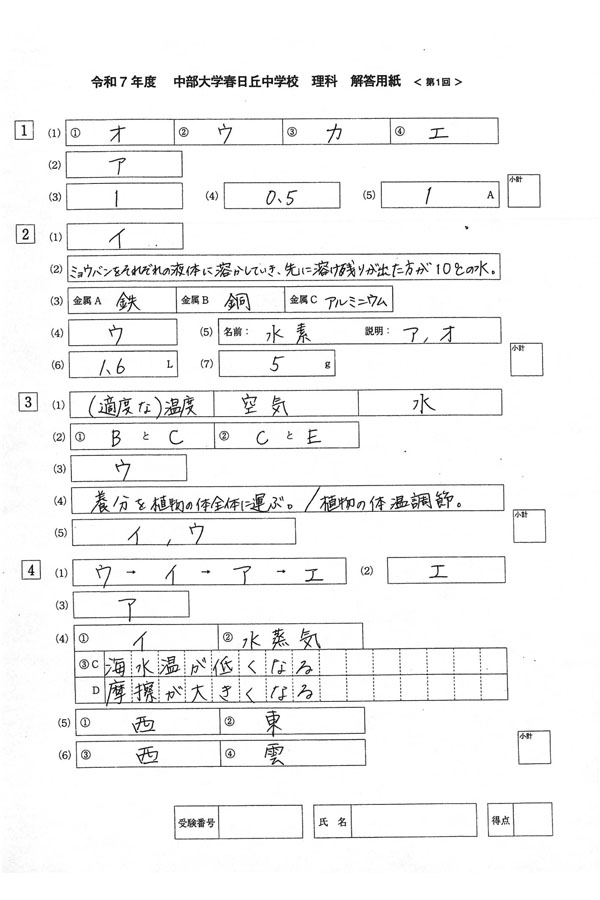 令和７年度 中部大学春日丘中学校 理科 解答用紙 ＜第1回＞
1 (1) ① オ ② ウ ③ カ ④ エ
(2) ア
(3) 1 (4) 0.5 (5) 1 A 小計
2 (1) イ
(2) ミョウバンをそれぞれの液体に溶かしていき、先に溶け残りが出た方が10℃の水。
(3) 金属A 鉄 金属B 銅 金属C アルミニウム
(4) ウ (5) 名前： 水素 説明： ア，オ
(6) 1.6 L (7) 5 g 小計
3 (1) (適度な)温度 空気 水
(2) ① BとC ② CとE
(3) ウ
(4) 養分を植物の体全体に運ぶ。/植物の体温調節。
(5) イ，ウ 小計
4 (1) ウ → イ → ア → エ (2) エ
(3) ア
(4) ① イ ② 水蒸気
③ C 海水温が低くなる
D 摩擦が大きくなる
(5) ① 西 ② 東
(6) ③ 西 ④ 雲 小計
受験番号 氏名 得点